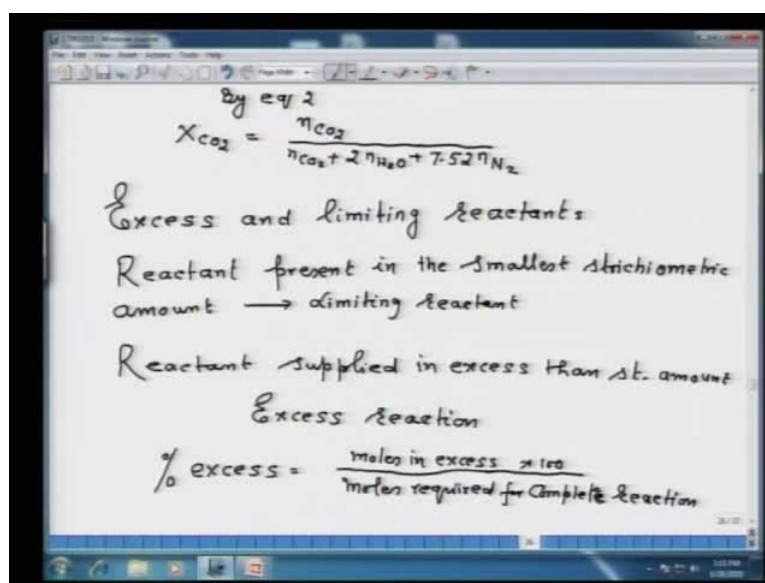 By eq 2
X_CO2 = n_CO2 / n_CO2 + 2 n_H2O + 7.52 n_N2
Excess and limiting reactants
Reactant present in the smallest strichiometric
amount → Limiting reactant
Reactant supplied in excess than st. amount
Excess reaction
% excess = moles in excess × 100 / moles required for Complete reaction